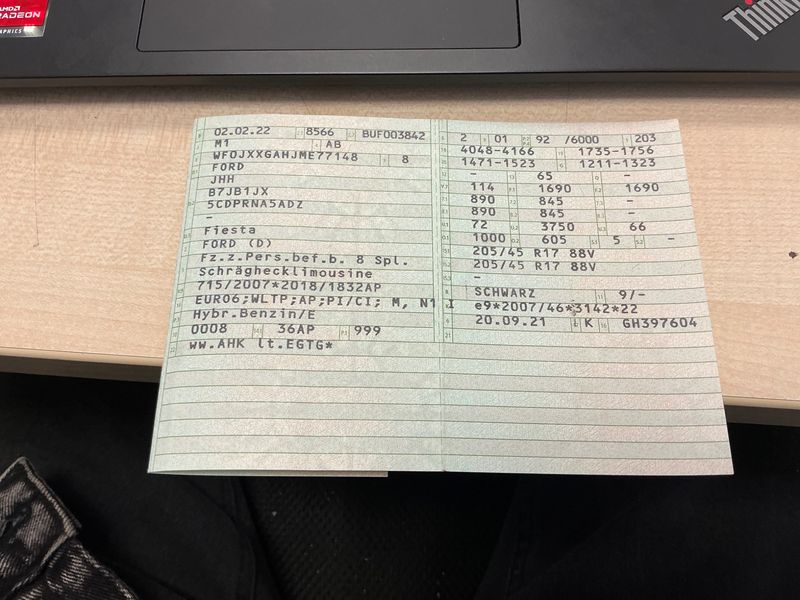 AMD
RADEON
GRAPHICS
Think
02.02.22 8566 BUF003842
M1 AB
WF0JXXGAHJME77148 8
FORD
JHH
B7JB1JX
5CDPRNA5ADZ
-
Fiesta
FORD (D)
Fz.z.Pers.bef.b. 8 Spl.
Schräghecklimousine
715/2007*2018/1832AP
EURO6;WLTP;AP;PI/CI; M, N1 I
Hybr.Benzin/E
0008 36AP 999
ww.AHK lt.EGTG*
2 01 92 /6000 203
4048-4166 1735-1756
1471-1523 1211-1323
- 65 -
114 1690 1690
890 845 -
890 845 -
72 3750 66
1000 605 5 -
205/45 R17 88V
205/45 R17 88V
-
SCHWARZ 9/-
e9*2007/46*3142*22
20.09.21 K GH397604